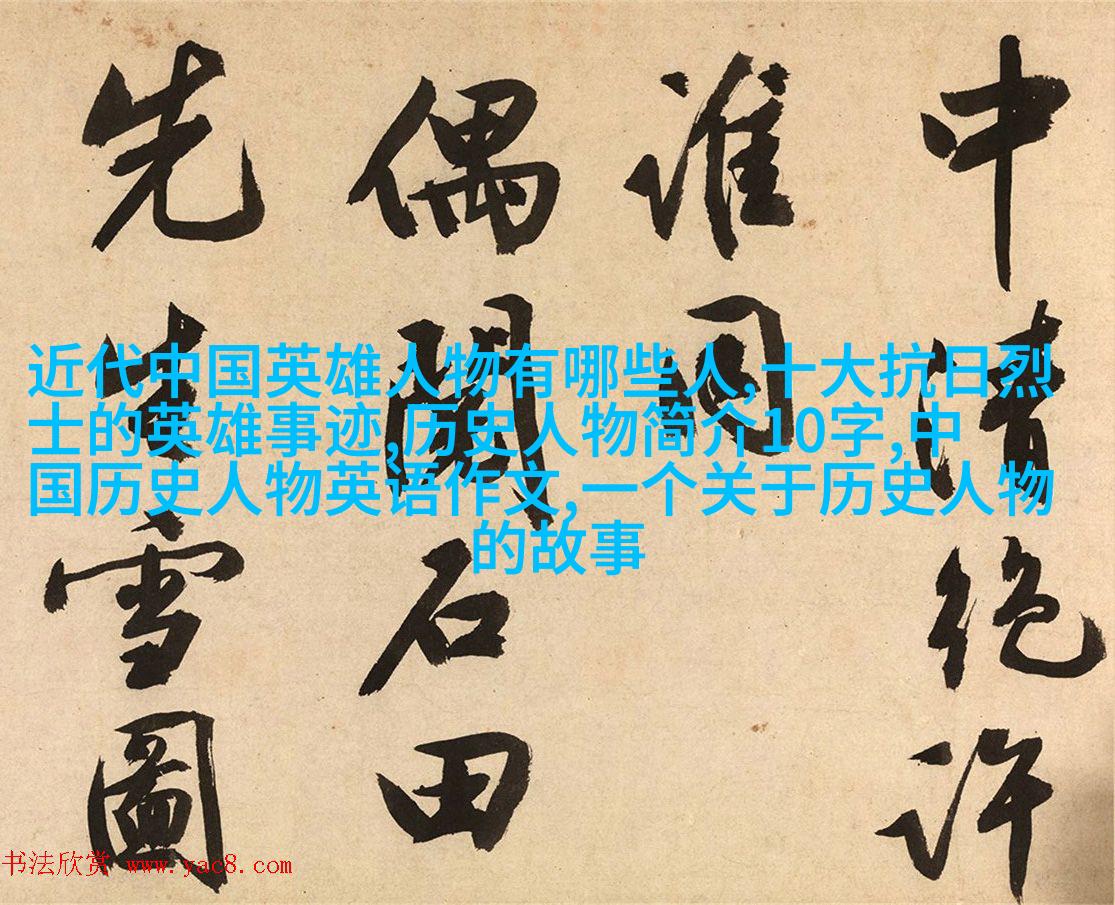 中清絕許
誰同
偶閱石田
先生雪圖
近代中国英雄人物有哪些人,十大抗日烈
士的英雄事迹,历史人物简介10字,中
国历史人物英语作文,一个关于历史人物
的故事
书法欣赏 www.yac8.com